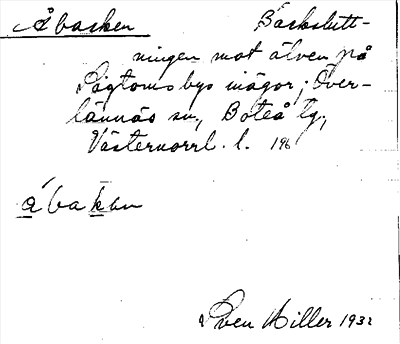 Åbacken Backslutt-
ningen mot älven på
bys inägor; Över-
lännäs sn, Boteå tg,
Västernorrl. l. 196
åbakan
Sven Hiller 1932